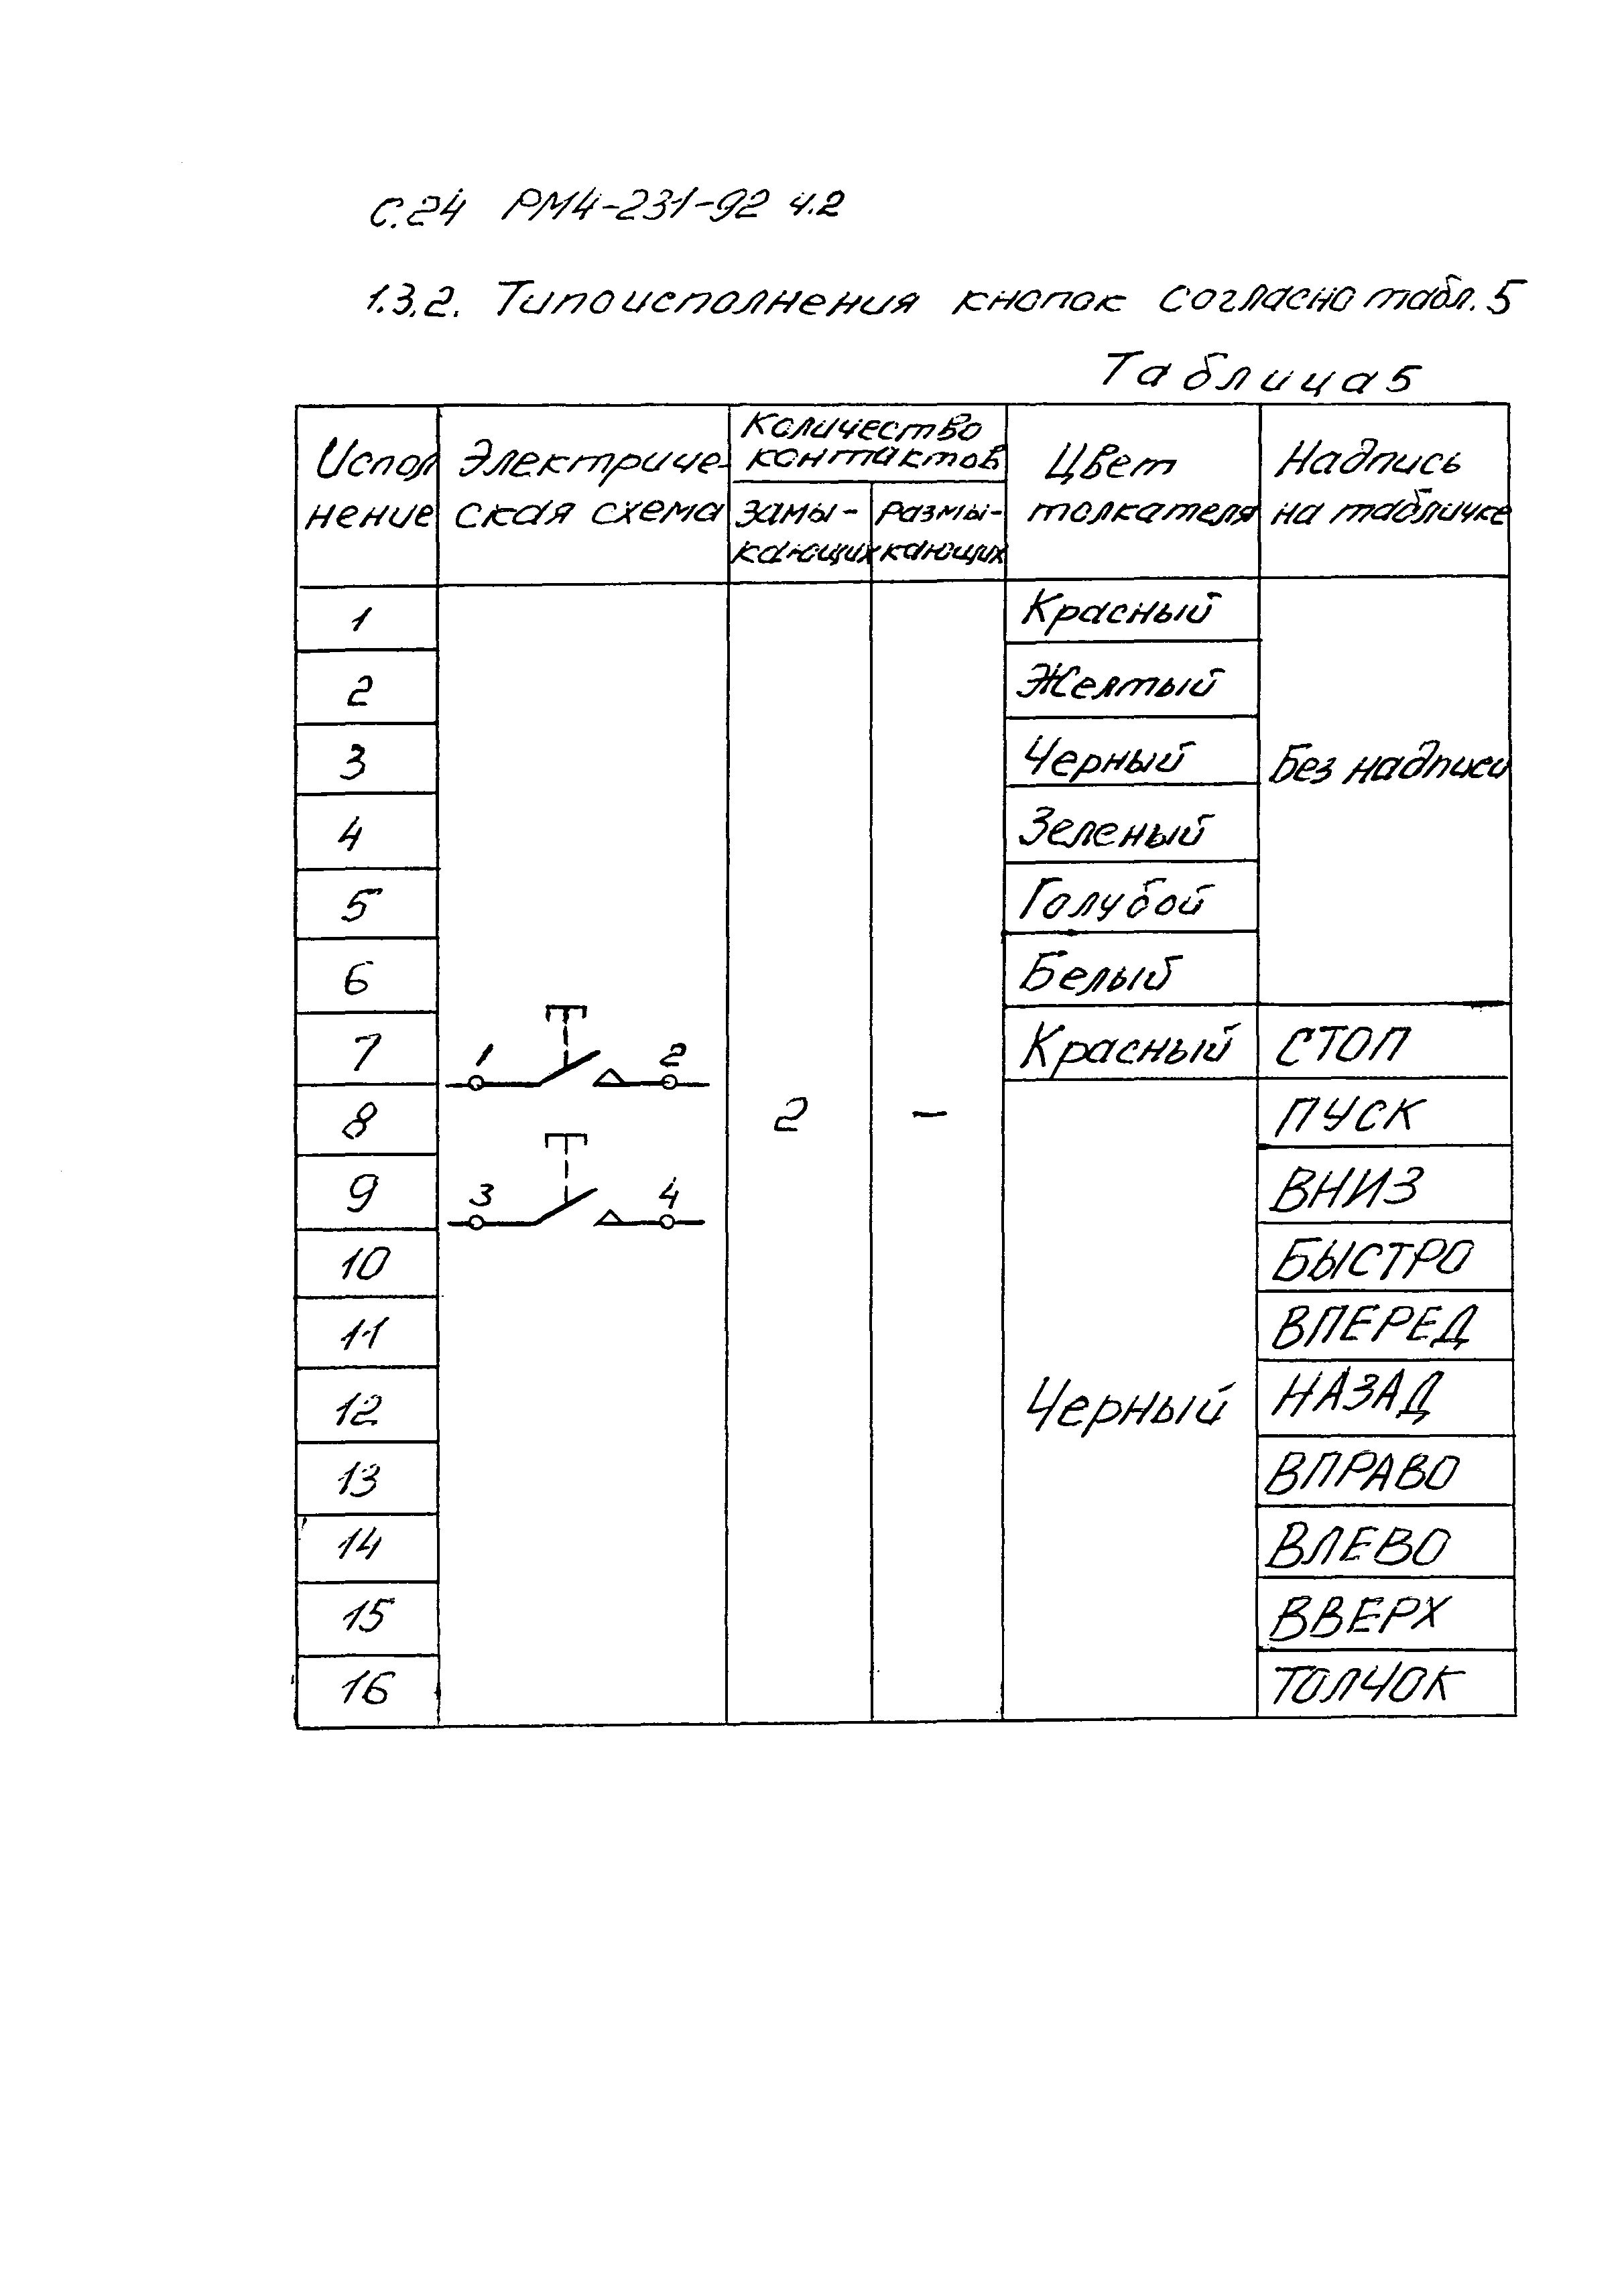 С.24 РМ4-231-92 ч.2
1.3.2. Типоисполнения кнопок согласно табл. 5
Таблица 5
Испол
нение
Электриче-
ская схема
Количество
контактов
Замы-
кающих
Размы-
кающих
Цвет
толкателя
Надпись
на табличке
1 Красный
2 Желтый
3 Черный Без надписи
4 Зеленый
5 Голубой
6 Белый
7 1 2 Красный СТОП
8 2 – ПУСК
9 3 4 ВНИЗ
10 БЫСТРО
11 ВПЕРЕД
12 Черный НАЗАД
13 ВПРАВО
14 ВЛЕВО
15 ВВЕРХ
16 ТОЛЧОК